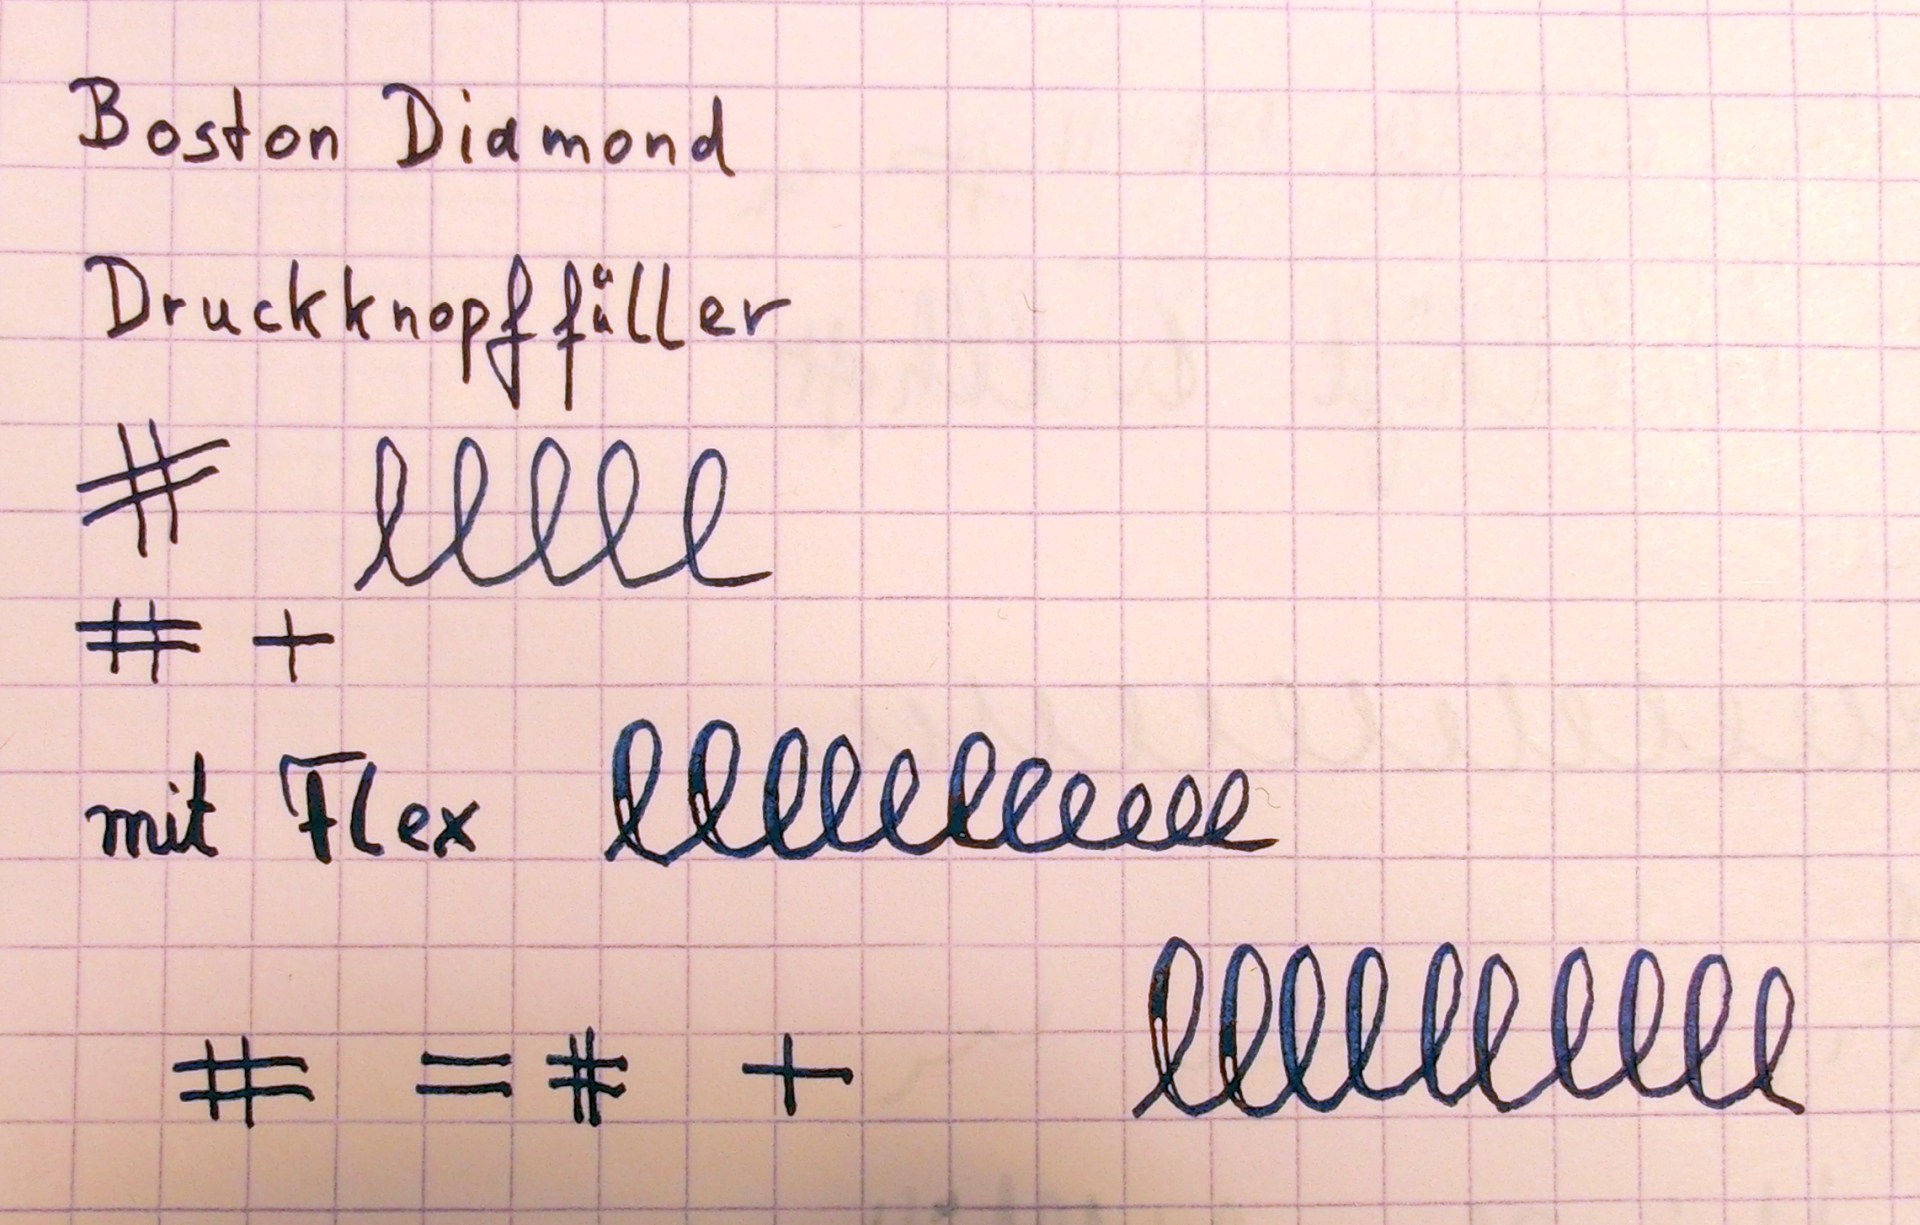 Boston Diamond
Druckknopffüller
# lllll
# +
mit Flex llllllllllll
# = # + llllllllll